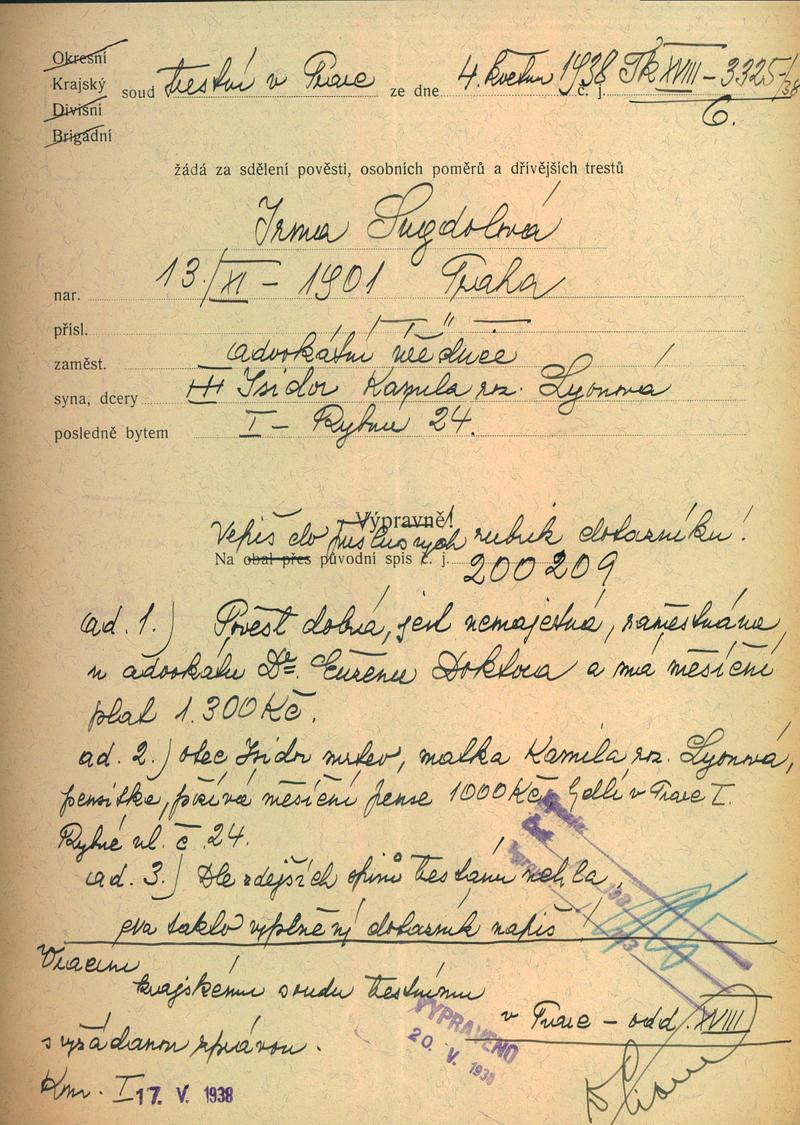 Okresní
Krajský
Divisní
Brigádní
soud trestní v Praze ze dne 4. května 1938 č. j. Tk XVIII – 3325/38
6.
žádá za sdělení pověsti, osobních poměrů a dřívějších trestů
Irma Sugdolová
nar. 13./XI – 1901 Praha
přísl. — " —
zaměst. advokátní úřednice
syna, dcery Isidor Kamila roz. Lyonová
posledně bytem I – Rybná 24.
Výpravně!
Vepiš do příslušných rubrik dotazníku!
Na obal přes původní spis č. j. 200209
ad. 1.) Pověst dobrá, jest nemajetná, zaměstnána
u advokáta Dr. Evžena Doktora a má měsíční
plat 1.300 Kč.
ad. 2.) otec Isidor mrtev, matka Kamila roz. Lyonová,
pensistka, požívá měsíční pense 1000 Kč, bydlí v Praze I.
Rybné ul. č. 24.
ad. 3.) Dle zdejších spisů trestána nebyla.
takto vyplněný dotazník napiš!
Vracím
krajskému soudu trestnímu
v Praze – odd. XVIII
s vyžádanou zprávou.
VYPRAVENO
20. V. 1938
Kom. I. 17. V. 1938